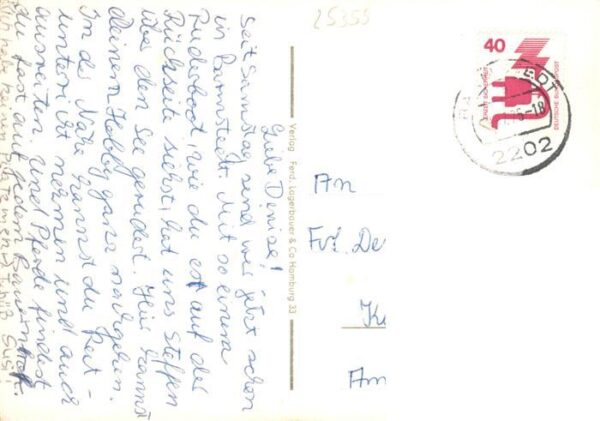 Liebe Denise!
Seit Samstag sind wir jetzt schon
in Barmstedt. Mit so einem
Ruderboot, wie du es auf der
Rückseite siehst, hat uns Steffen
über den See gerudert. Hier kannst
deinem Hobby ganz nachgehen.
In der Nähe kannst du Reit-
unterricht nehmen und auch
ausreiten. Und Pferde findest
du fast auf jedem Bauernhof.
Ich habe keinen Platz mehr Tschüß Susi!
Verlag Ferd. Lagerbauer & Co Hamburg 33
25355
40
DEUTSCHE BUNDESPOST
-18
2202
An
Frl. De
Ke
Am